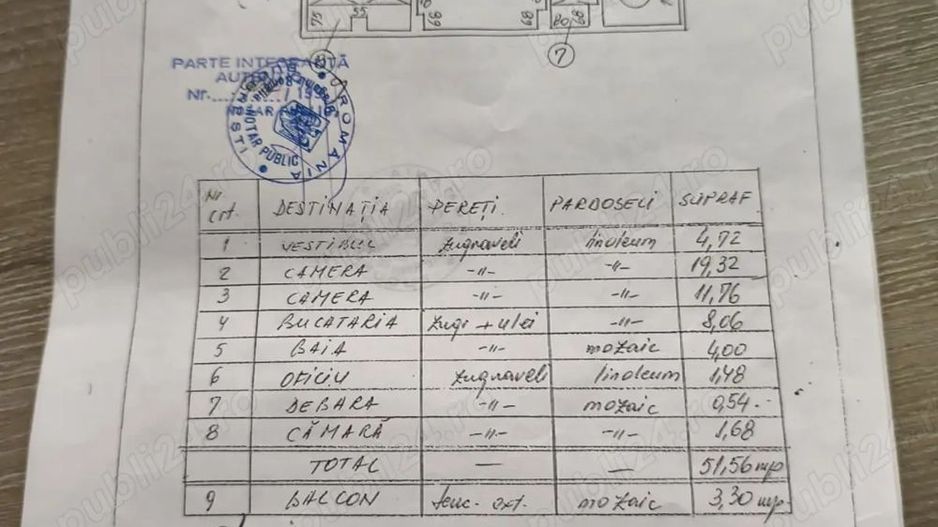 75
55
68
68
80
68
7
PARTE INTEGRANTĂ
Nr.
ROMANIA
NOTAR PUBLIC
Nr. crt. DESTINAȚIA PEREȚI PARDOSELI SUPRAF
1 VESTIBUL zugraveli linoleum 4,72
2 CAMERA -"- -"- 19,32
3 CAMERA -"- -"- 11,76
4 BUCATARIA zugr + ulei -"- 8,06
5 BAIA -"- mozaic 4,00
6 OFICIU zugraveli linoleum 1,48
7 DEBARA -"- mozaic 0,54
8 CĂMARĂ -"- -"- 1,68
TOTAL — — 51,56 mp
9 BALCON tenc. ext. mozaic 3,30 mp
publi24.ro